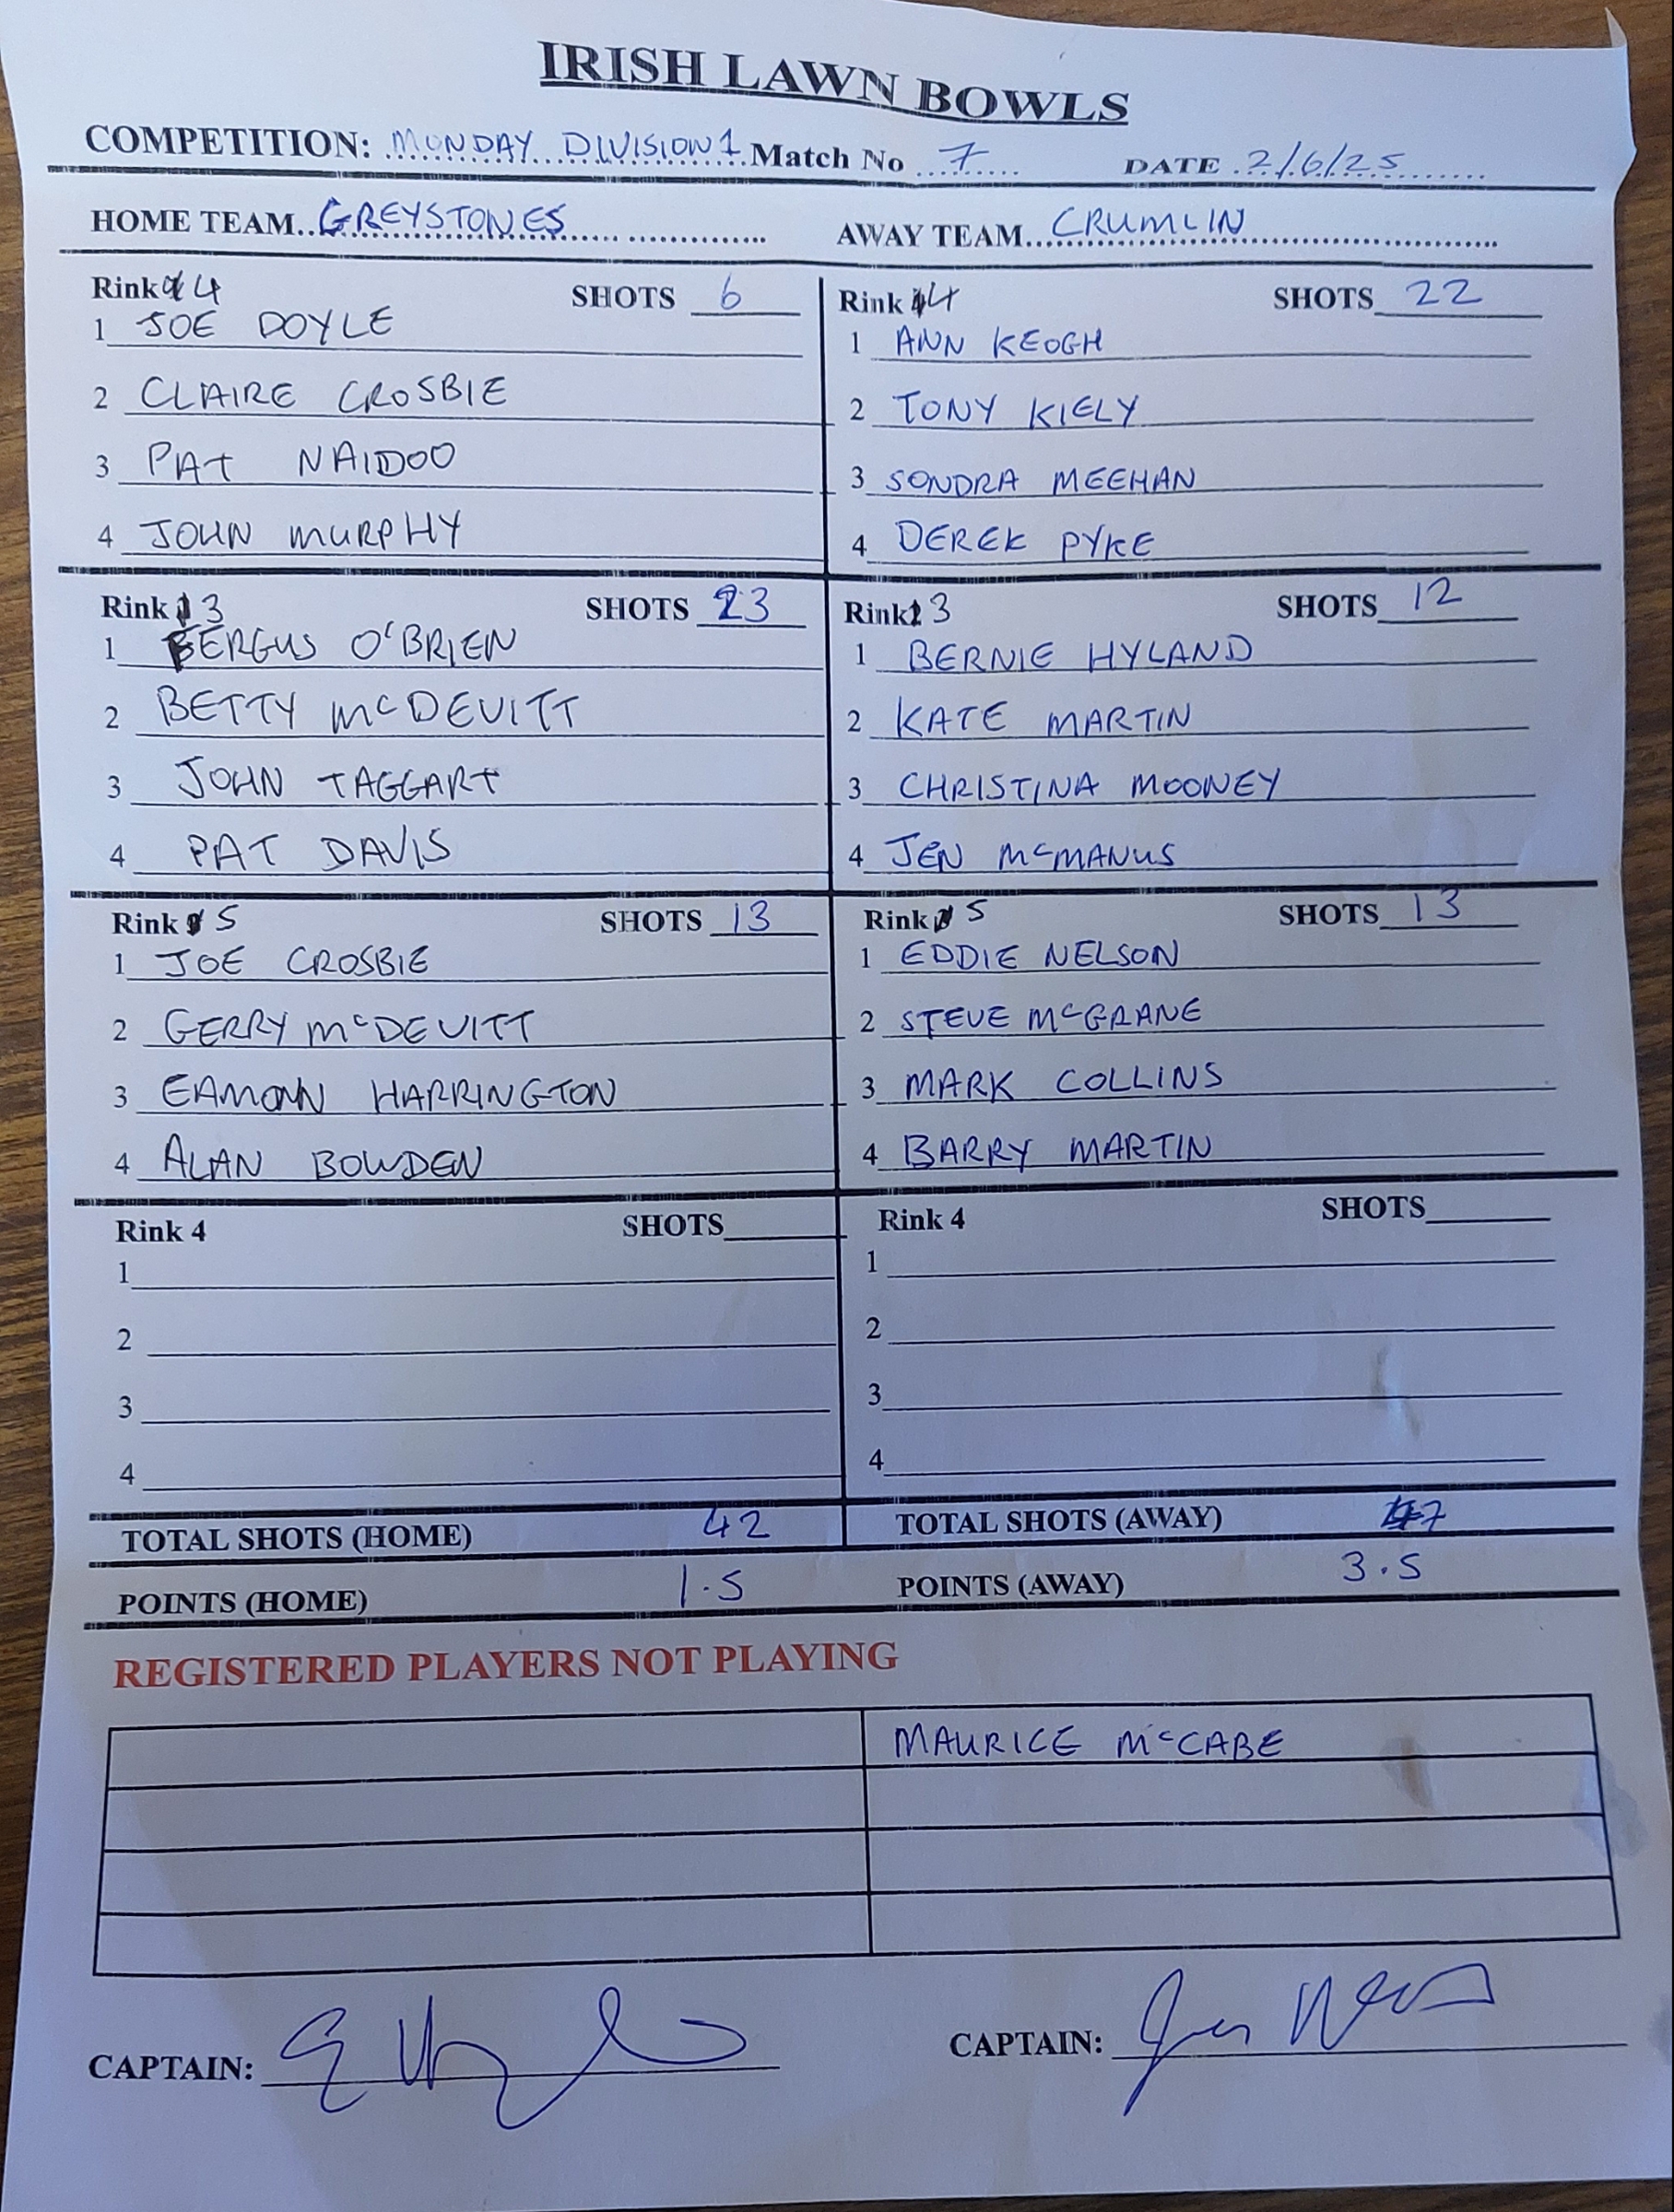 IRISH LAWN BOWLS
COMPETITION: MONDAY DIVISION 1 Match No 7 DATE 2/6/25
HOME TEAM GREYSTONES AWAY TEAM CRUMLIN
Rink 4 SHOTS 6
1 JOE DOYLE
2 CLAIRE CROSBIE
3 PAT NAIDOO
4 JOHN MURPHY
Rink 4 SHOTS 22
1 ANN KEOGH
2 TONY KIELY
3 SONDRA MEEHAN
4 DEREK PYKE
Rink 3 SHOTS 23
1 FERGUS O'BRIEN
2 BETTY McDEVITT
3 JOHN TAGGART
4 PAT DAVIS
Rink 3 SHOTS 12
1 BERNIE HYLAND
2 KATE MARTIN
3 CHRISTINA MOONEY
4 JEN McMANUS
Rink 5 SHOTS 13
1 JOE CROSBIE
2 GERRY McDEVITT
3 EAMONN HARRINGTON
4 ALAN BOWDEN
Rink 5 SHOTS 13
1 EDDIE NELSON
2 STEVE McGRANE
3 MARK COLLINS
4 BARRY MARTIN
Rink 4 SHOTS
1
2
3
4
Rink 4 SHOTS
1
2
3
4
TOTAL SHOTS (HOME) 42 TOTAL SHOTS (AWAY) 47
POINTS (HOME) 1.5 POINTS (AWAY) 3.5
REGISTERED PLAYERS NOT PLAYING
MAURICE McCABE
CAPTAIN: CAPTAIN: